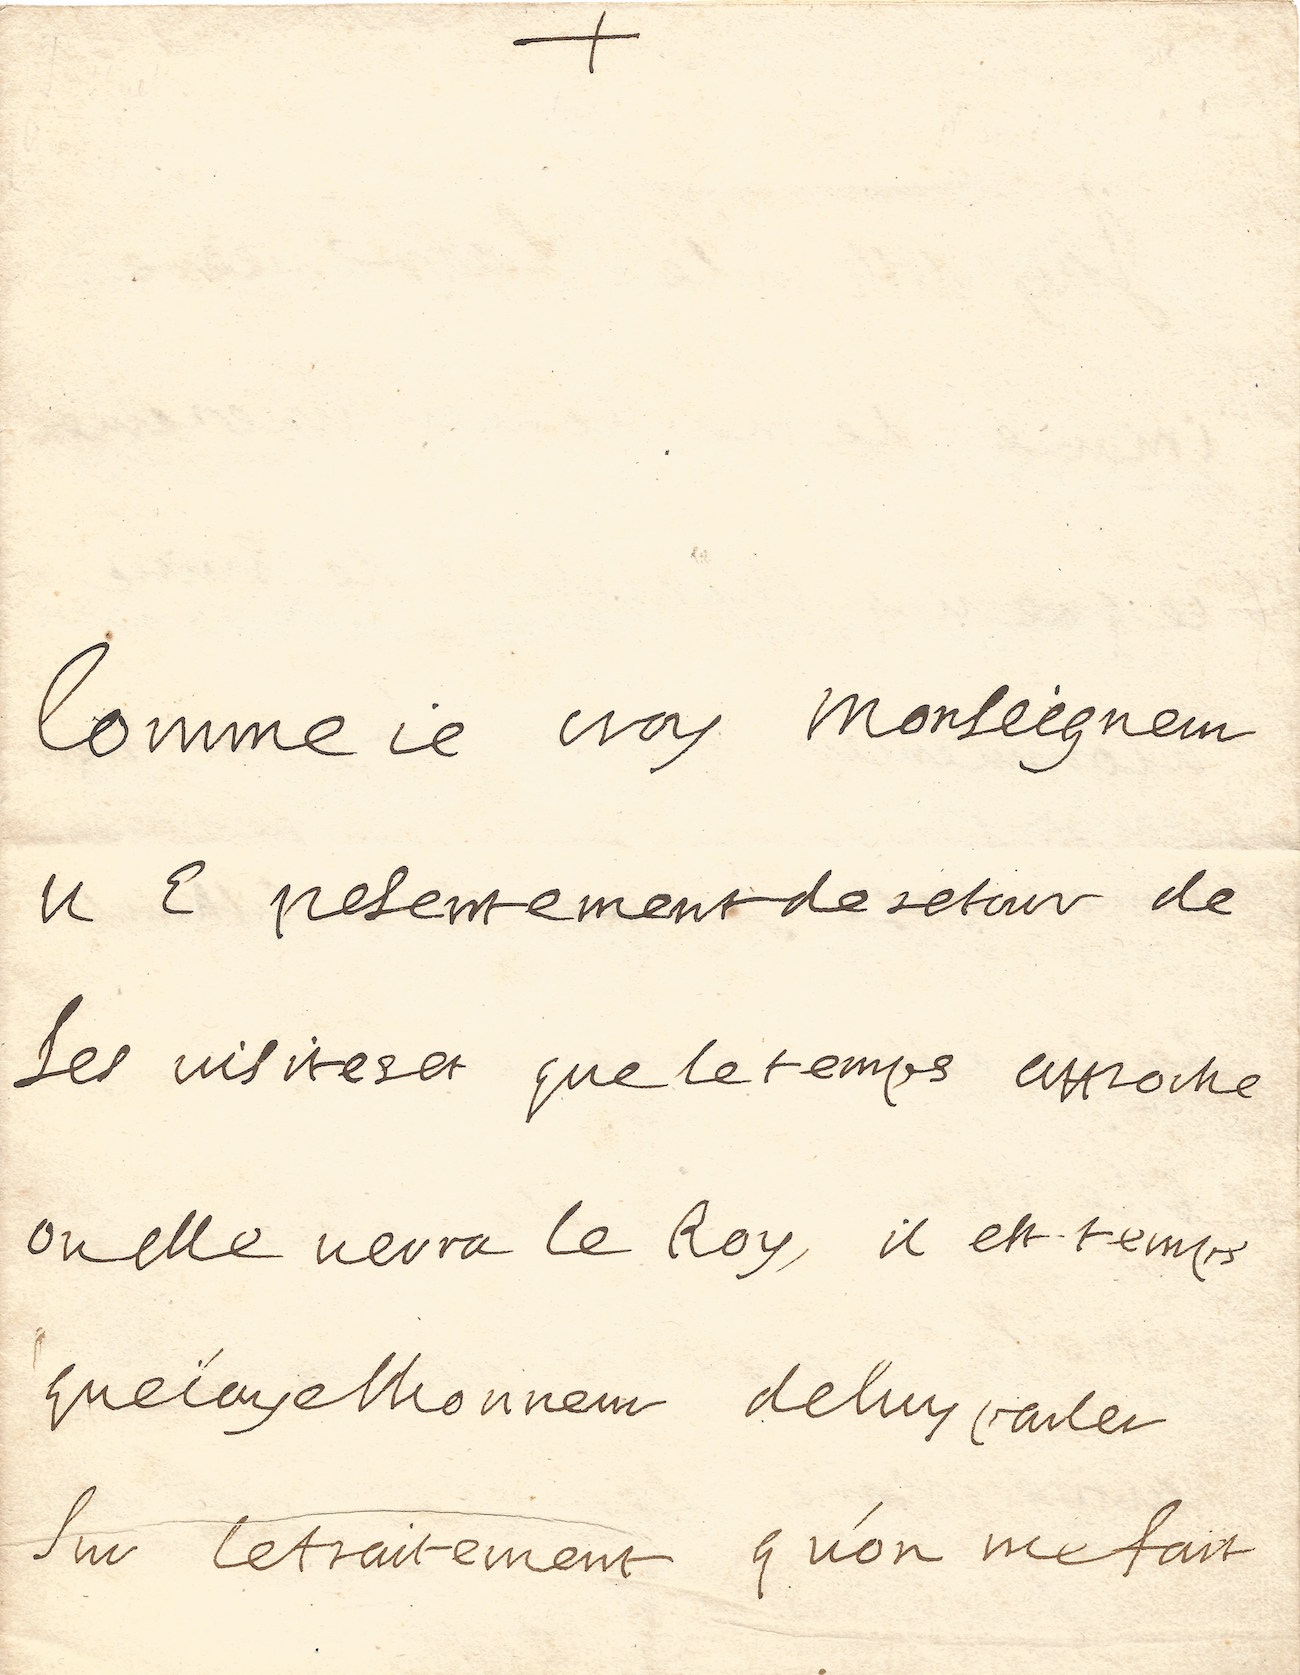 +
Comme ie croy Monseigneur
V E presentement de retour de
ses visites et que le temps approche
ou elle verra le Roy, il est temps
que i'aye l'honneur de luy parler
sur le traitement qu'on me fait